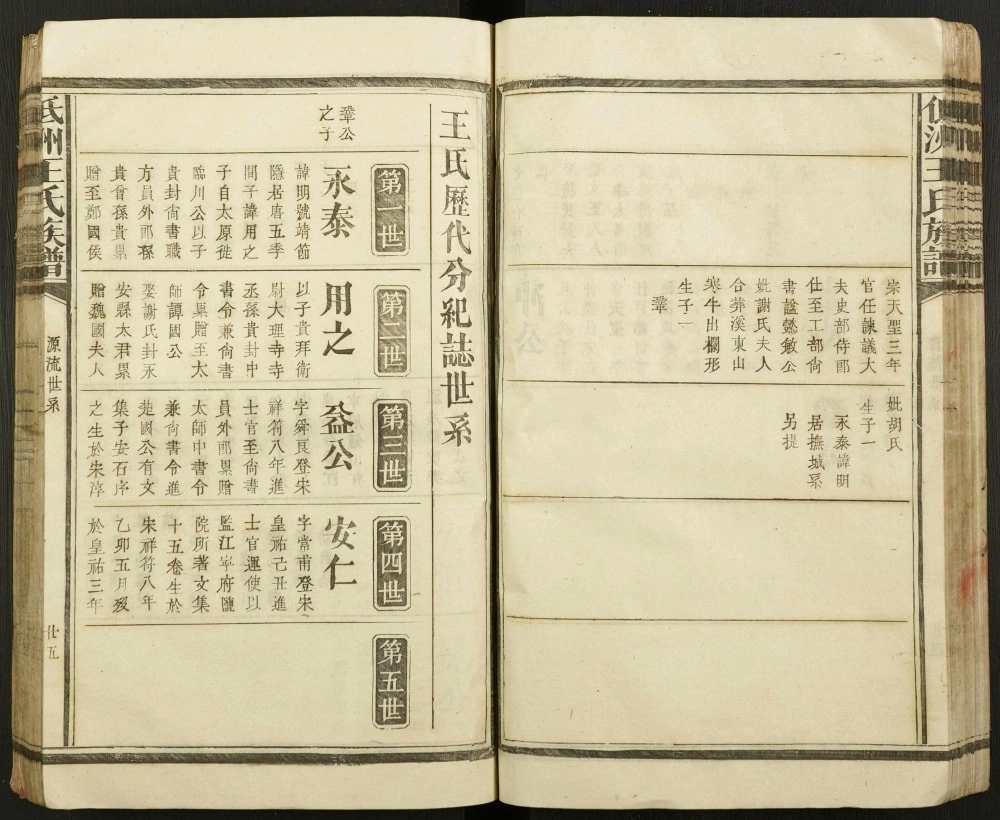 宗天聖三年
官任諫議大
夫史部侍郎
仕至工部尙
書諡懿敏公
妣謝氏夫人
合葬溪東山
寒牛出欄形
生子一
鞏
妣胡氏
生子一
永泰諱明
居撫城系
另提
王氏歷代分紀誌世系
鞏公
之子
第一世
永泰
諱明號靖節
隱居唐五季
間子諱用之
子自太原徙
臨川公以子
貴封尙書職
方員外郎孫
貴曾孫貴累
贈至鄭國侯
第二世
用之
以子貴拜衛
尉大理寺寺
丞孫貴封中
書令兼尙書
令累贈至太
師譚国公
娶謝氏封永
安縣太君累
贈魏國夫人
第三世
益公
字舜良登宋
祥符八年進
士官至尙書
員外郎累贈
太師中書令
兼尙書令進
楚國公有文
集子安石序
之生於宋淳
第四世
安仁
字常甫登宋
皇祐己丑進
士官運使以
監江寧府鹽
院所著文集
十五卷生於
宋祥符八年
乙卯五月歿
於皇祐三年
第五世
洲王氏族譜
源流世系
廿五